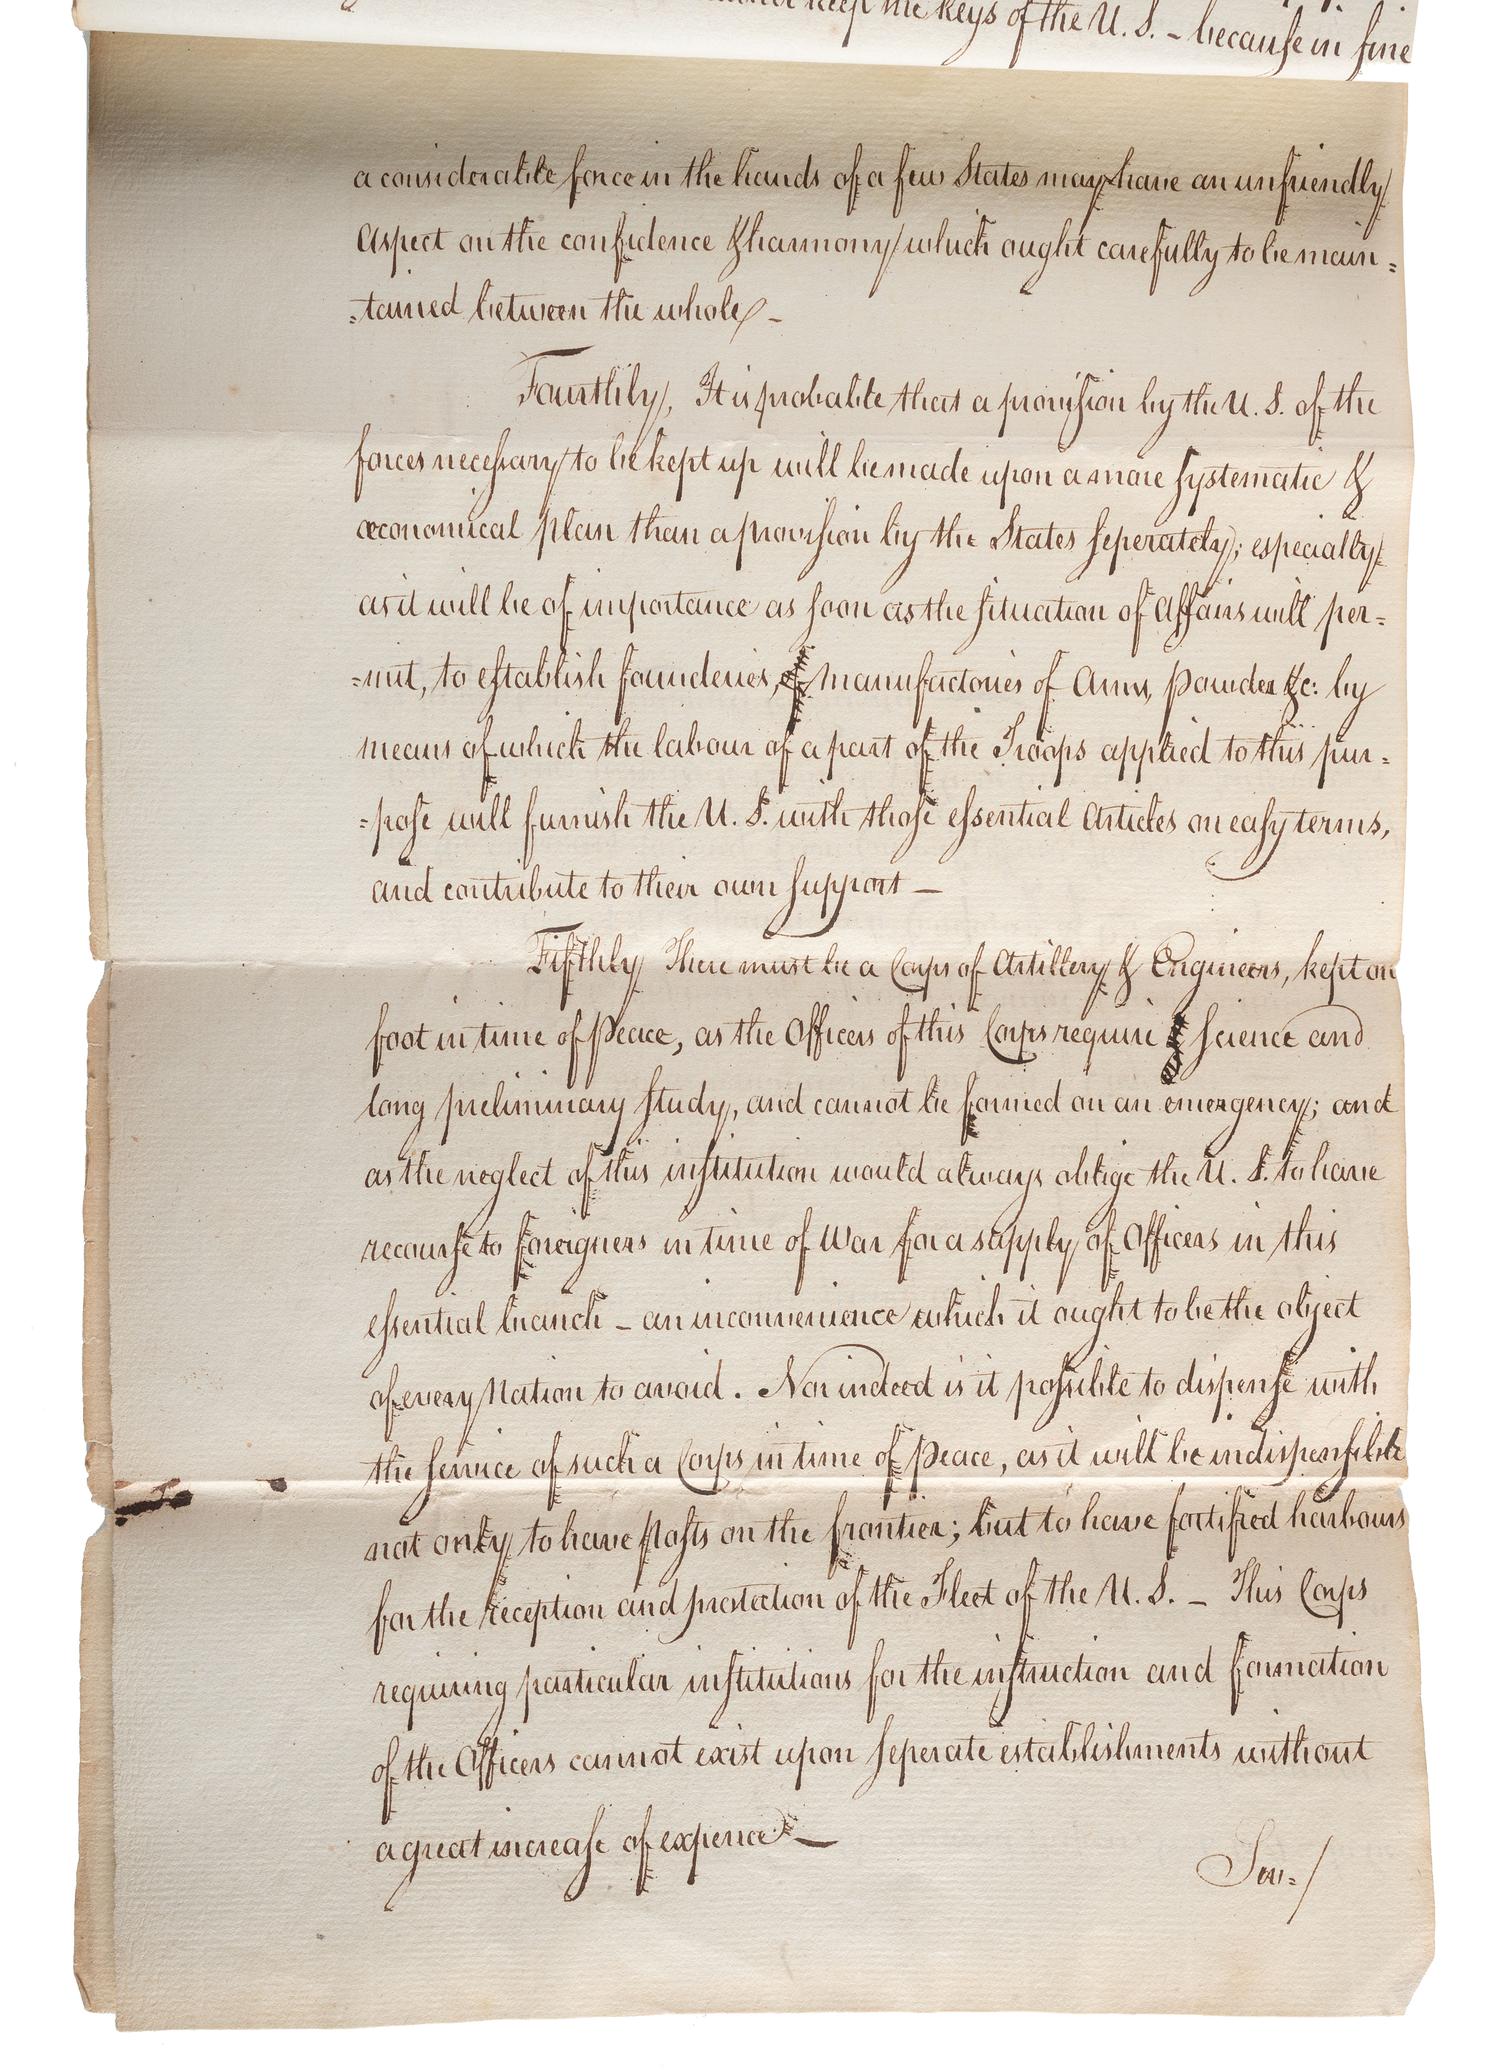 keep the keys of the U. S. - because in fine
a considerable force in the hands of a few States may have an unfriendly
Aspect on the confidence & harmony which ought carefully to be main=
=tained between the whole -
Fourthly, It is probable that a provision by the U. S. of the
forces necessary to be kept up will be made upon a more systematic &
œconomical plan than a provision by the States seperately; especially
as it will be of importance as soon as the situation of Affairs will per=
=mit, to establish founderies, manufactories of Arms, Powder &c: by
means of which the labour of a part of the Troops applied to this pur=
=pose will furnish the U. S. with those essential Articles on easy terms,
and contribute to their own support -
Fifthly There must be a Corps of Artillery & Engineers, kept on
foot in time of Peace, as the Officers of this Corps require science and
long preliminary study, and cannot be formed on an emergency; and
as the neglect of this institution would always oblige the U. S. to have
recourse to foreigners in time of War for a supply of Officers in this
essential branch - an inconvenience which it ought to be the object
of every Nation to avoid. Nor indeed is it possible to dispense with
the service of such a Corps in time of Peace, as it will be indispensible
not only to have posts on the frontier; but to have fortified harbours
for the reception and protection of the Fleet of the U. S. - This Corps
requiring particular institutions for the instruction and formation
of the Officers cannot exist upon seperate establishments without
a great increase of expence -